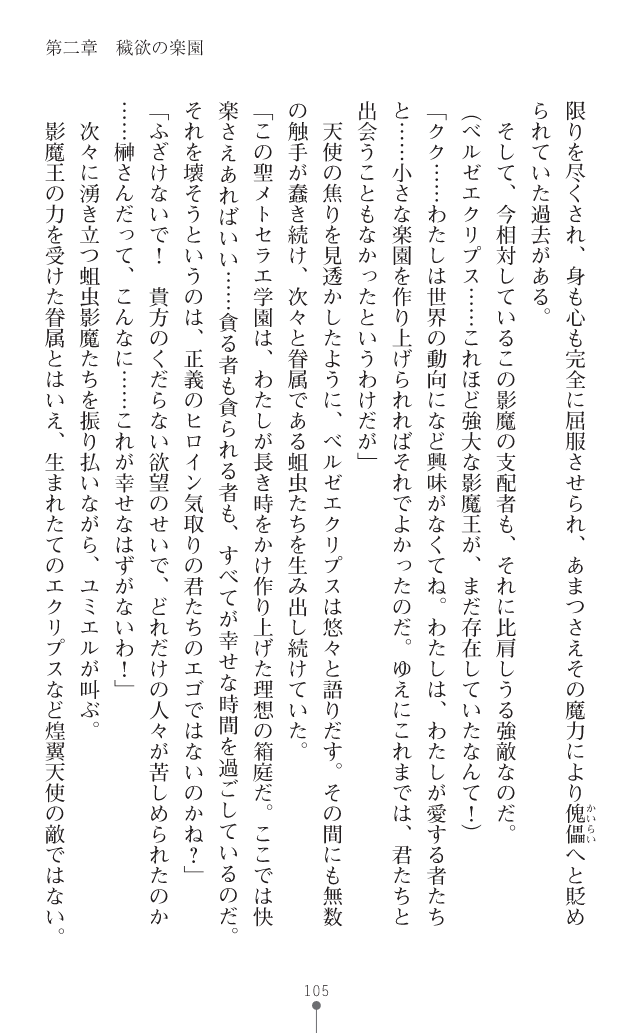 第二章　穢欲の楽園
限りを尽くされ、身も心も完全に屈服させられ、あまつさえその魔力により傀儡へと貶め
かいらい
られていた過去がある。
　そして、今相対しているこの影魔の支配者も、それに比肩しうる強敵なのだ。
（ベルゼエクリプス……これほど強大な影魔王が、まだ存在していたなんて！）
「クク……わたしは世界の動向になど興味がなくてね。わたしは、わたしが愛する者たち
と……小さな楽園を作り上げられればそれでよかったのだ。ゆえにこれまでは、君たちと
出会うこともなかったというわけだが」
　天使の焦りを見透かしたように、ベルゼエクリプスは悠々と語りだす。その間にも無数
の触手が蠢き続け、次々と眷属である蛆虫たちを生み出し続けていた。
「この聖メトセラエ学園は、わたしが長き時をかけ作り上げた理想の箱庭だ。ここでは快
楽さえあればいい……貪る者も貪られる者も、すべてが幸せな時間を過ごしているのだ。
それを壊そうというのは、正義のヒロイン気取りの君たちのエゴではないのかね？」
「ふざけないで！　貴方のくだらない欲望のせいで、どれだけの人々が苦しめられたのか
……榊さんだって、こんなに……これが幸せなはずがないわ！」
　次々に湧き立つ蛆虫影魔たちを振り払いながら、ユミエルが叫ぶ。
　影魔王の力を受けた眷属とはいえ、生まれたてのエクリプスなど煌翼天使の敵ではない。
105